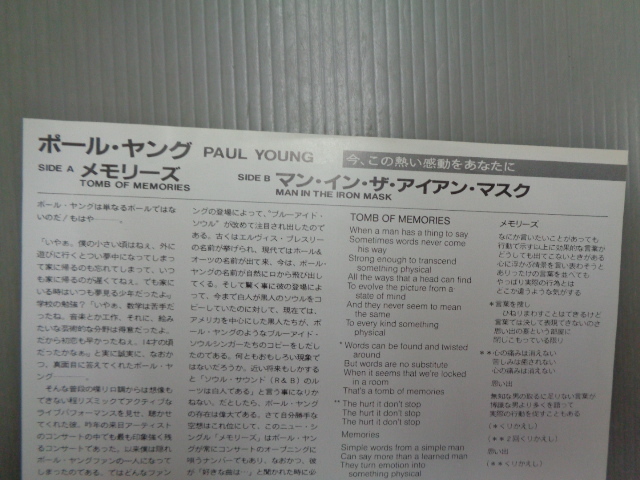 ポール・ヤング PAUL YOUNG
今、この熱い感動をあなたに
SIDE A メモリーズ
TOMB OF MEMORIES
SIDE B マン・イン・ザ・アイアン・マスク
MAN IN THE IRON MASK
ポール・ヤングは単なるポールではな
いのだ!もはや————。
「いやぁ、僕の小さい頃はねぇ、外に
遊びに行くとつい夢中になってしまっ
て家に帰るのも忘れてしまって、いつ
も家に帰るのが遅くてねぇ。でも家に
いる時はいつも夢見る少年だったよ。」
学校の勉強?「いやぁ、数学は苦手だ
ったね。音楽とか工作、それに、絵み
たいな芸術的な分野は得意だったよ。
だから初恋も早かったねぇ。14才の頃
だったかなぁ。」と実に誠実に、なおか
つ、真面目に答えてくれたポール・
ヤング————
そんな普段の喋り口調からは想像も
できない程リズミックでアクティブな
ライブパフォーマンスを見せ、聴かせ
てくれた彼。昨年の来日アーティスト
のコンサートの中でも最も印象強く残
るコンサートであった。以来僕は隠れ
ポール・ヤングファンの一人になって
しまったのである。ではどんなファン
ングの登場によって、“ブルーアイド・
ソウル”が改めて注目され出したので
ある。古くはエルヴィス・プレスリー
の名前が挙げられ、現代ではホール&
オーツの名前が出て来、今は、ポール・
ヤングの名前が自然に口から飛び出し
てくる。そして驚く事に彼の登場によ
って、今まで白人が黒人のソウルをコ
ピーしていたのに対して、現在では、
アメリカを中心にした黒人たちが、ポ
ール・ヤングのようなブルーアイド・
ソウルシンガーたちのコピーをしだし
たのである。何ともおもしろい現象で
はないだろうか。近い将来もしかする
と「ソウル・サウンド(R&B)のル
ーツは白人である」と言う事になりか
ねない。だとしたら、ポール・ヤング
の存在は偉大である。さて自分勝手な
空想はこれ位にして、このニュー・シ
ングル「メモリーズ」はポール・ヤン
グが常にコンサートのオープニングに
唄うナンバーでもあり、なおかつ、彼
が「好きな曲は—」と聞かれた時に必
TOMB OF MEMORIES
When a man has a thing to say
Sometimes words never come
his way
Strong enough to transcend
something physical
All the ways that a head can find
To evolve the picture from a
state of mind
And they never seem to mean
the same
To every kind something
physical
* Words can be found and twisted
around
But words are no substitute
When it seems that we're locked
in a room
That's a tomb of memories
** The hurt it don't stop
The hurt it don't stop
The hurt it don't stop
Memories
Simple words from a simple man
Can say more than a learned man
They turn emotion into
something physical
メモリーズ
なにか言いたいことがあっても
行動で示す以上に効果的な言葉が
どうしても出てこないときがある
心に浮かぶ情景を言い表わそうと
ありったけの言葉を並べても
やっぱり実際の行為とは
どこか違うような気がする
★言葉を捜し
ひねりまわすことはできるけど
言葉では決して表現できないのさ
思い出の墓という部屋に
閉じこもっている限り
★★心の痛みは消えない
苦しみは癒されない
心の痛みは消えない
思い出
無知な男の取るに足りない言葉が
博識な男より多くを語って
実際の行動を促すこともある
(★くりかえし)
(★★2回くりかえし)
思い出
(★★くりかえし)